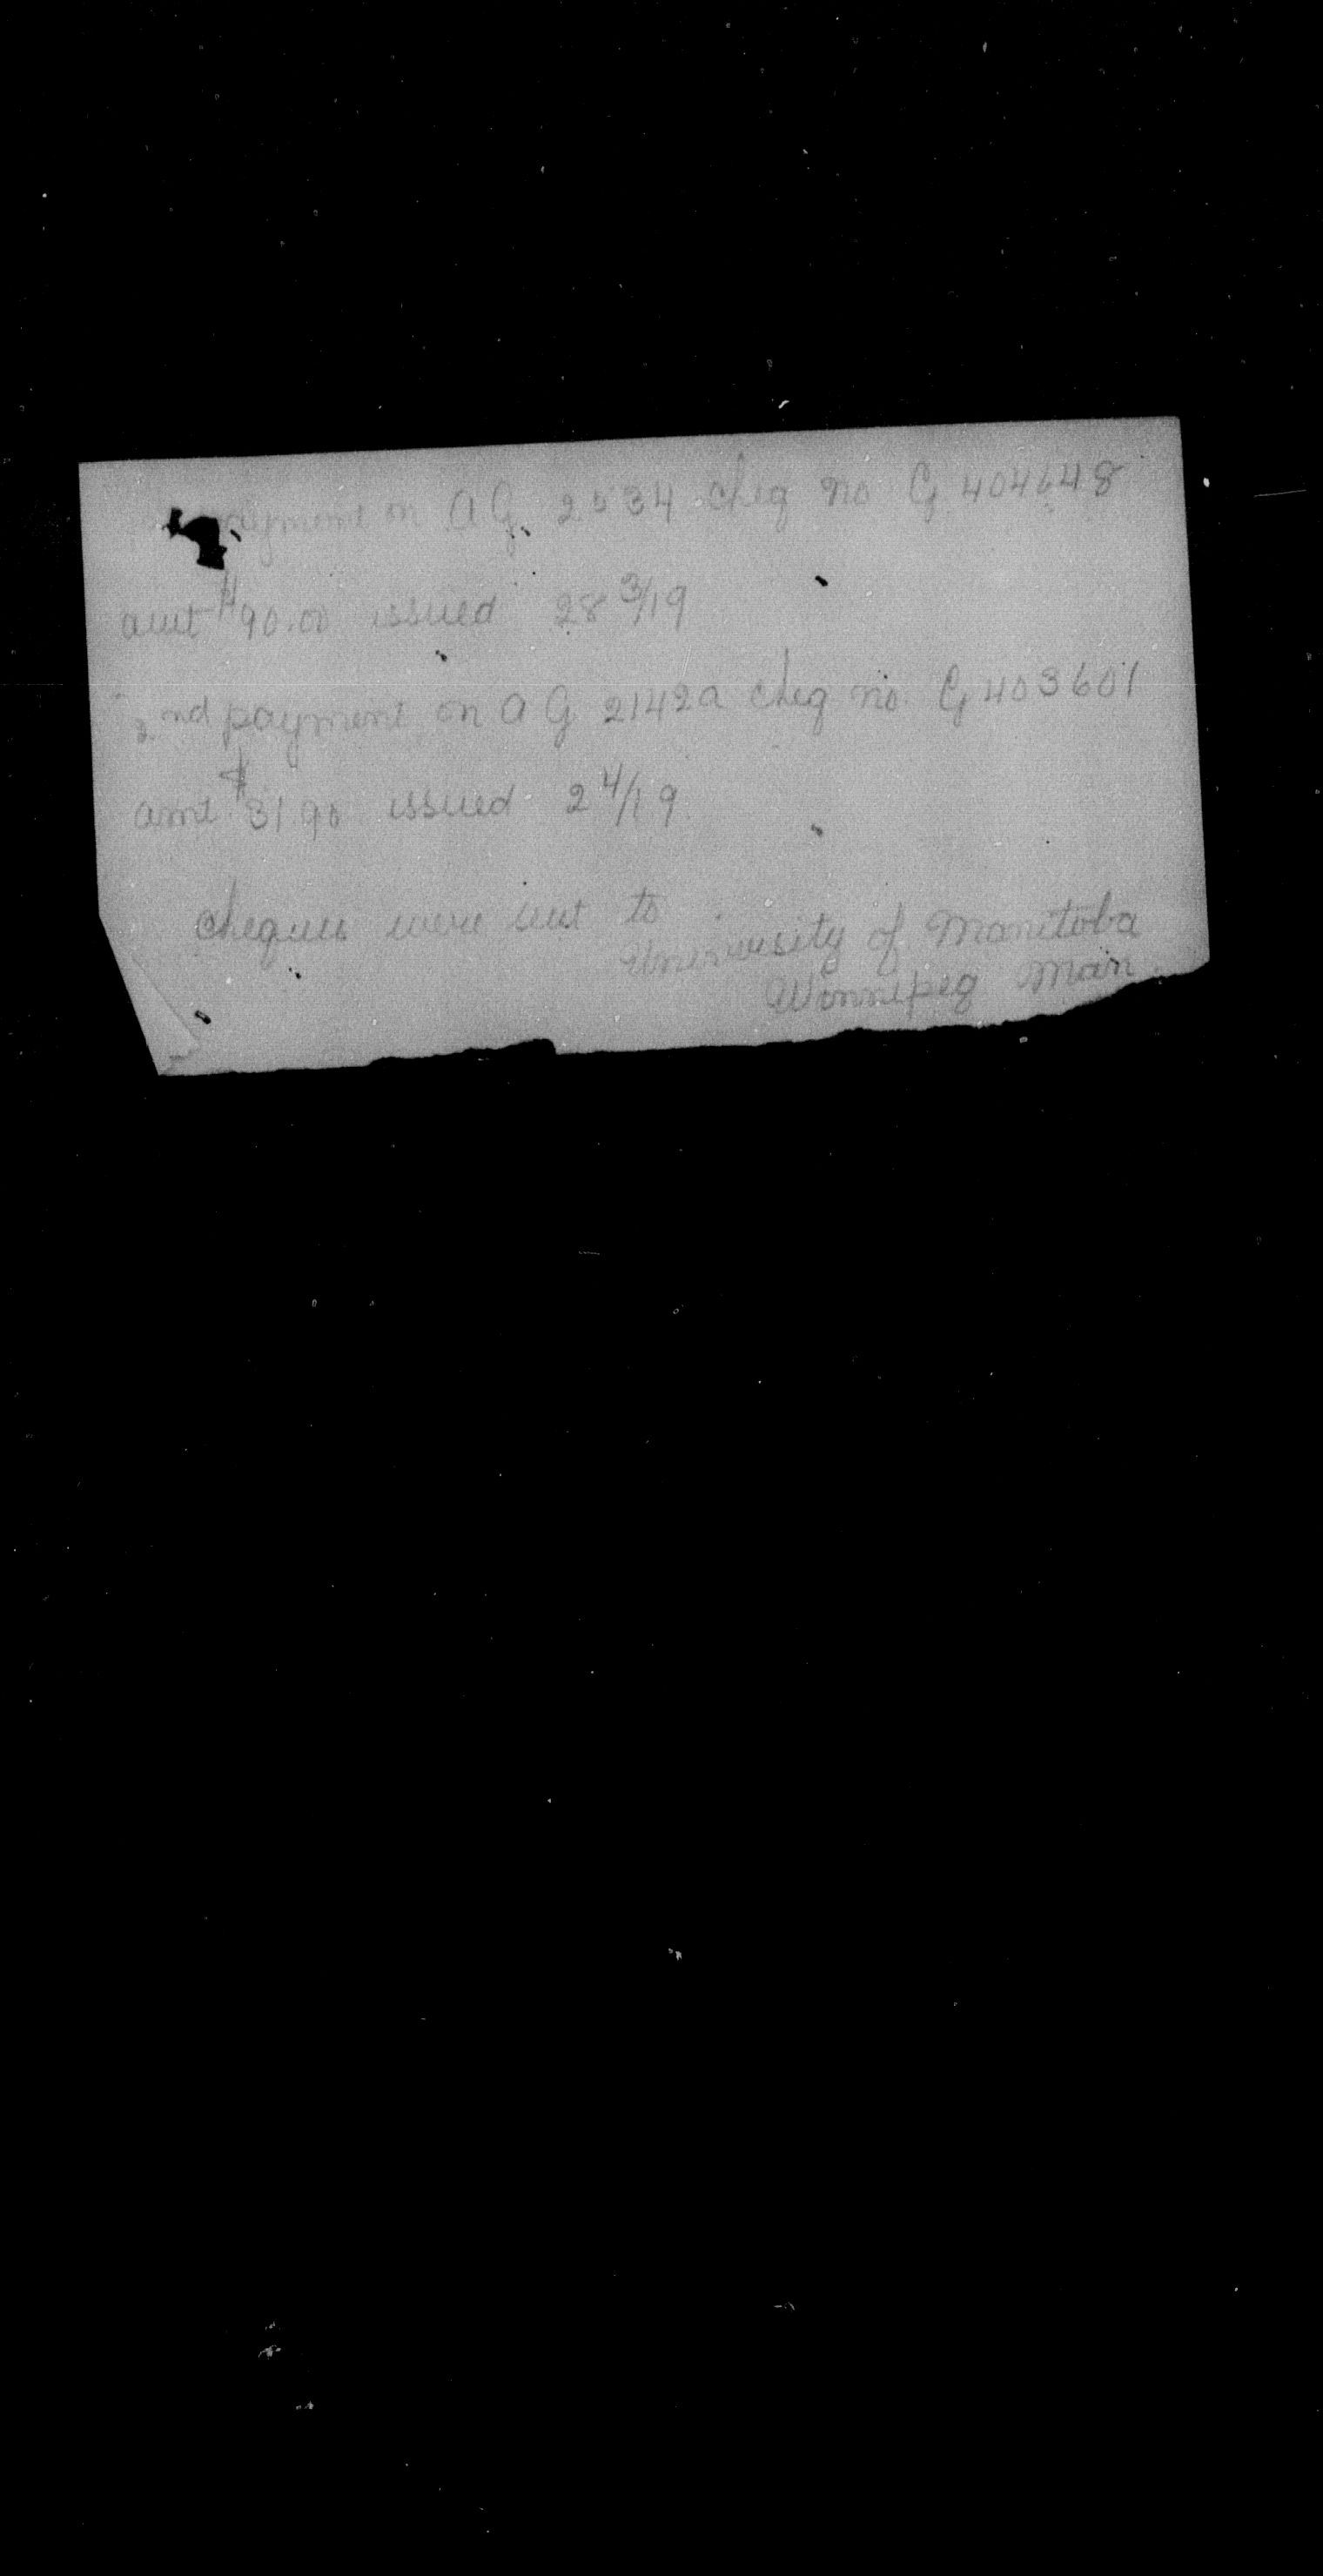 payment on A G. 2534 cheq no G 404648
amt $90.00 issued 28 3/19
2nd payment on A G 2142a cheq no. G 403601
amt $31 90 issued 2 4/19
cheques were sent to
University of Manitoba
Winnipeg Man